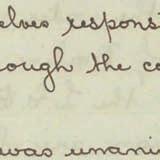 elves respons
rough the co
was unani